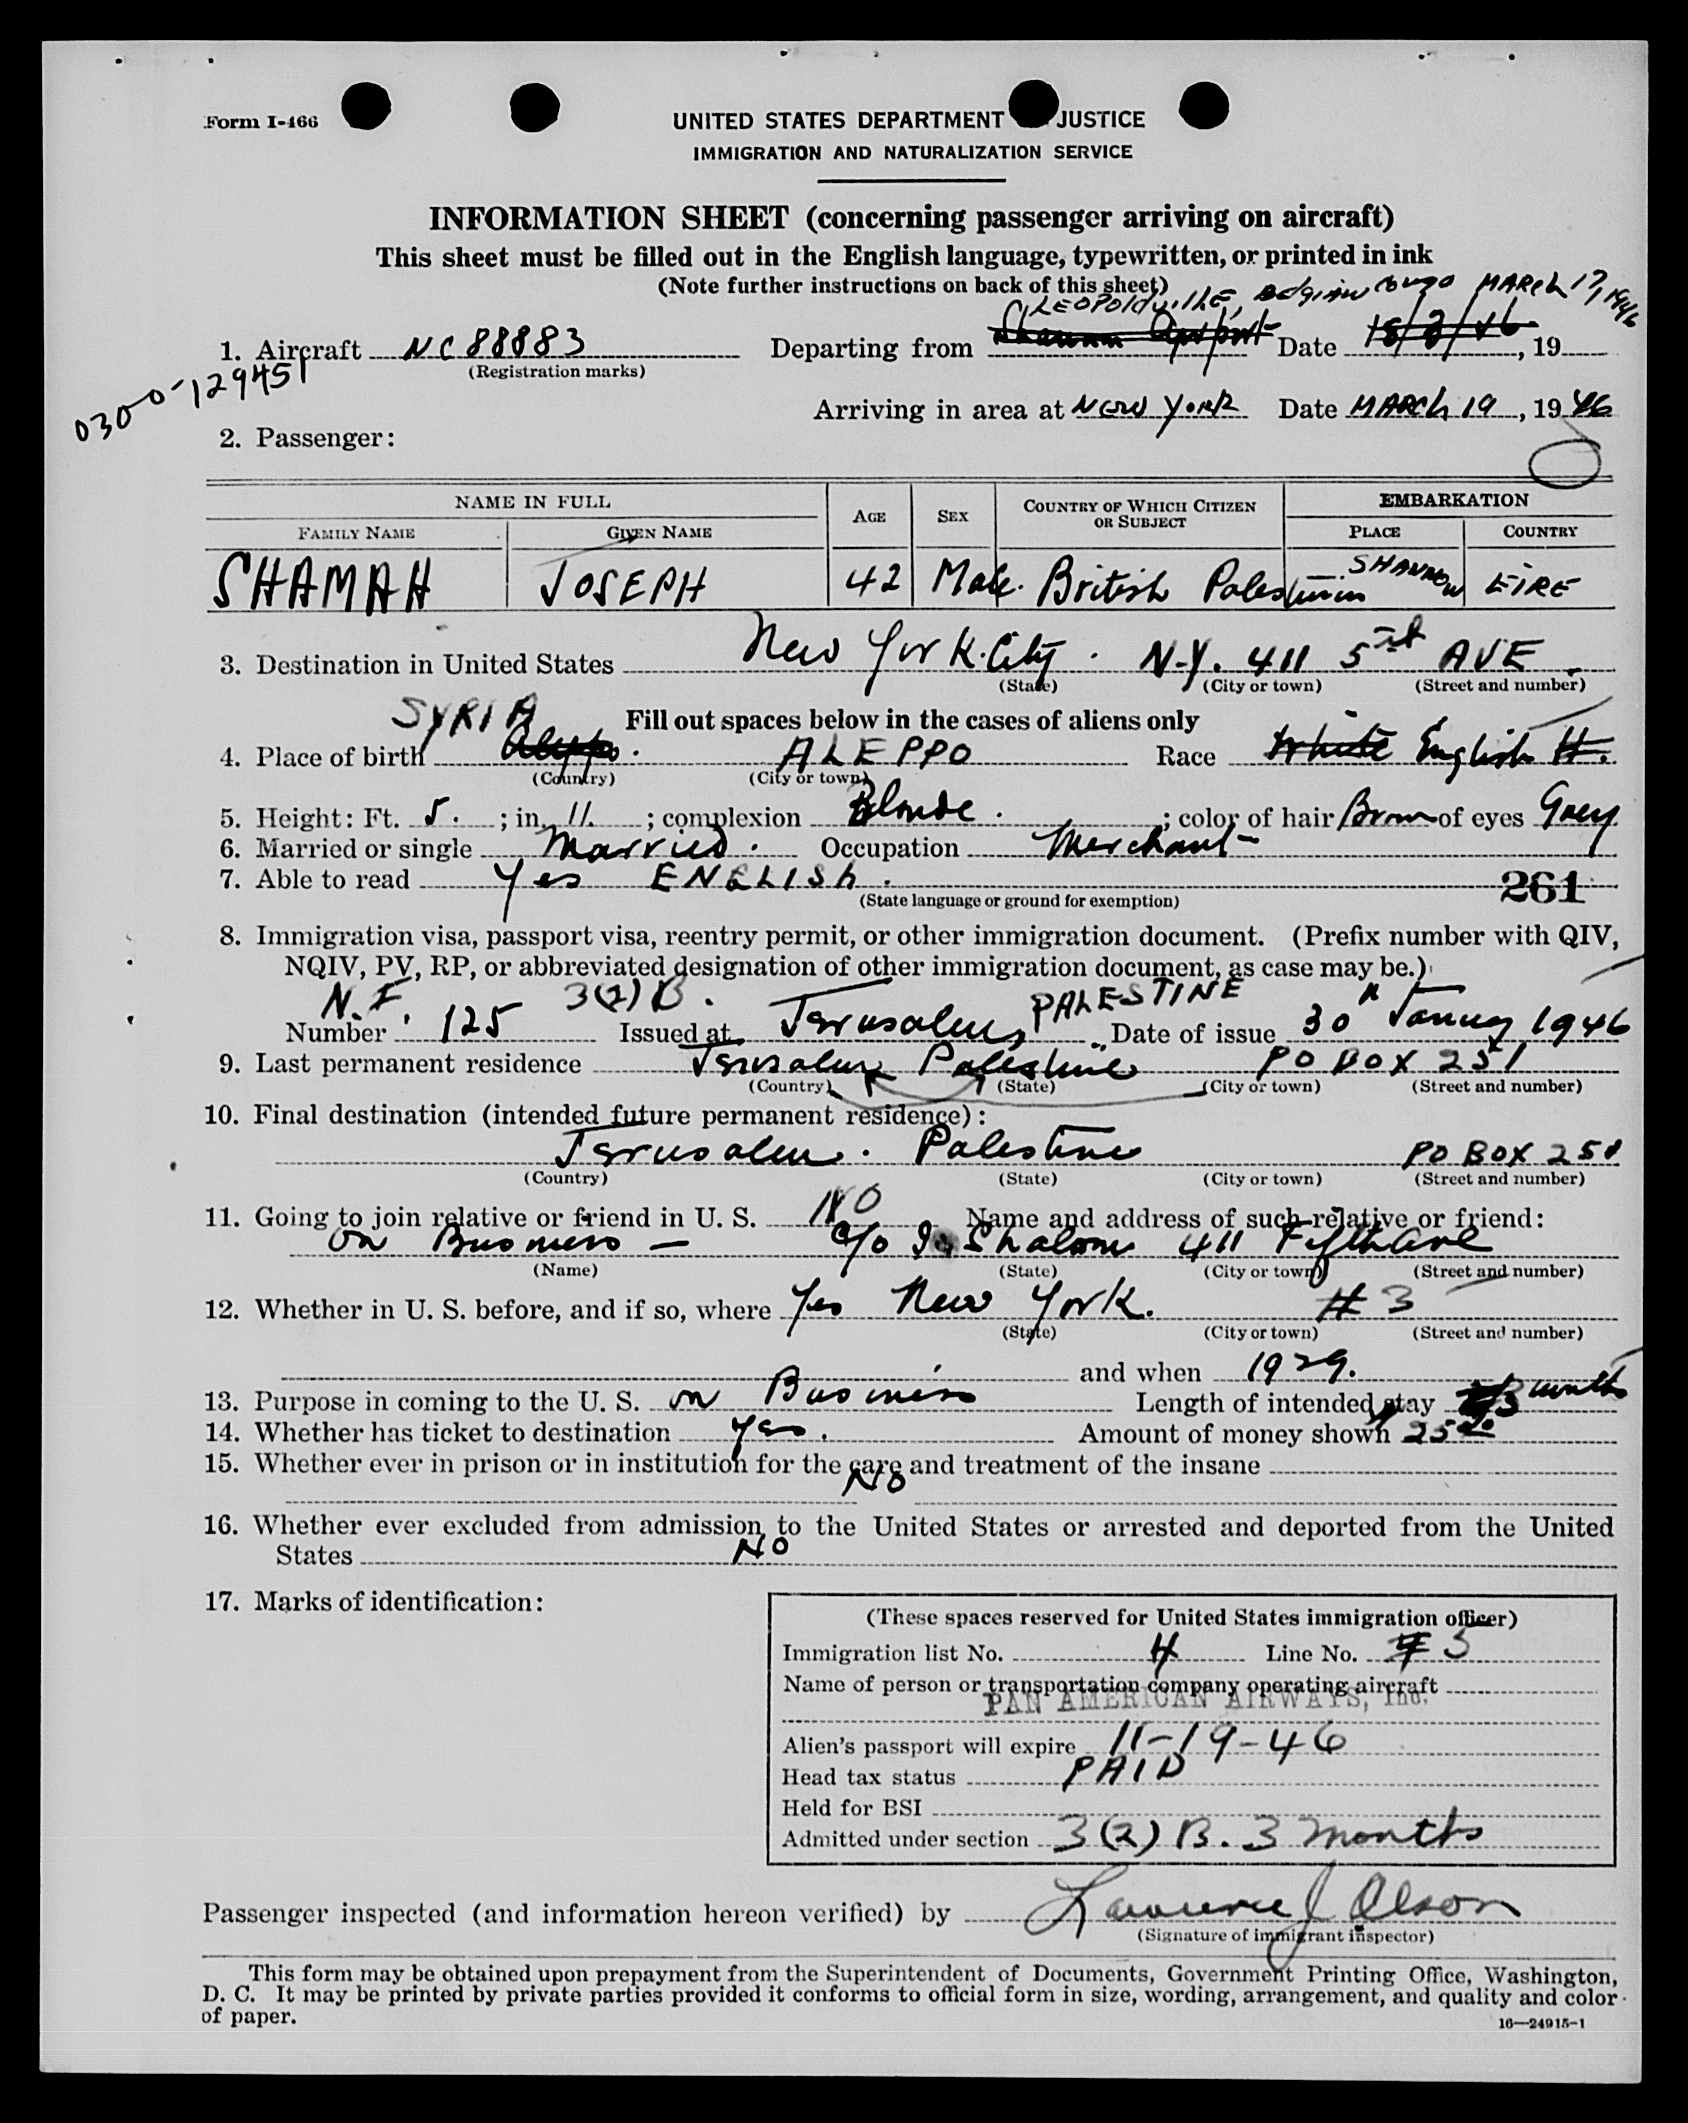 Form I-466
UNITED STATES DEPARTMENT JUSTICE
IMMIGRATION AND NATURALIZATION SERVICE
INFORMATION SHEET (concerning passenger arriving on aircraft)
This sheet must be filled out in the English language, typewritten, or printed in ink
(Note further instructions on back of this sheet)
LEOPOLDVILLE, BELGIAN CONGO MARCH 17, 1946
1. Aircraft NC 88883 Departing from Shannon Airport Date 18/3/46, 19
(Registration marks)
0300-129451
Arriving in area at NEW YORK Date MARCH 19, 1946
2. Passenger:
NAME IN FULL AGE SEX COUNTRY OF WHICH CITIZEN OR SUBJECT EMBARKATION
FAMILY NAME GIVEN NAME PLACE COUNTRY
SHAMAH JOSEPH 42 Male. British Palestinian SHANNON EIRE
3. Destination in United States New York City. N.Y. 411 5th AVE
(State) (City or town) (Street and number)
SYRIA Fill out spaces below in the cases of aliens only
4. Place of birth Aleppo. ALEPPO Race White English H.
(Country) (City or town)
5. Height: Ft. 5. ; in. 11. ; complexion Blonde. ; color of hair Brown of eyes Grey
6. Married or single Married. Occupation Merchant-
7. Able to read Yes ENGLISH.
(State language or ground for exemption) 261
8. Immigration visa, passport visa, reentry permit, or other immigration document. (Prefix number with QIV,
NQIV, PV, RP, or abbreviated designation of other immigration document, as case may be.)
N.I. 3(2)B. PALESTINE
Number 125 Issued at Jerusalem, Date of issue 30th January 1946
9. Last permanent residence Jerusalem Palestine PO BOX 251
(Country) (State) (City or town) (Street and number)
10. Final destination (intended future permanent residence):
Jerusalem. Palestine PO BOX 251
(Country) (State) (City or town) (Street and number)
11. Going to join relative or friend in U. S. NO Name and address of such relative or friend:
On Business - c/o I. Shalom 411 Fifth Ave
(Name) (State) (City or town) (Street and number)
12. Whether in U. S. before, and if so, where Yes New York. # 3
(State) (City or town) (Street and number)
and when 1929.
13. Purpose in coming to the U. S. on Business Length of intended stay 3 months
14. Whether has ticket to destination yes. Amount of money shown 25 00
15. Whether ever in prison or in institution for the care and treatment of the insane
NO
16. Whether ever excluded from admission to the United States or arrested and deported from the United
States NO
17. Marks of identification:
(These spaces reserved for United States immigration officer)
Immigration list No. 4 Line No. 3
Name of person or transportation company operating aircraft
PAN AMERICAN AIRWAYS, Inc.
Alien's passport will expire 11-19-46
Head tax status PAID
Held for BSI
Admitted under section 3(2) B. 3 months
Passenger inspected (and information hereon verified) by Lawrence J Olson
(Signature of immigrant inspector)
This form may be obtained upon prepayment from the Superintendent of Documents, Government Printing Office, Washington,
D. C. It may be printed by private parties provided it conforms to official form in size, wording, arrangement, and quality and color
of paper.
16—24915-1